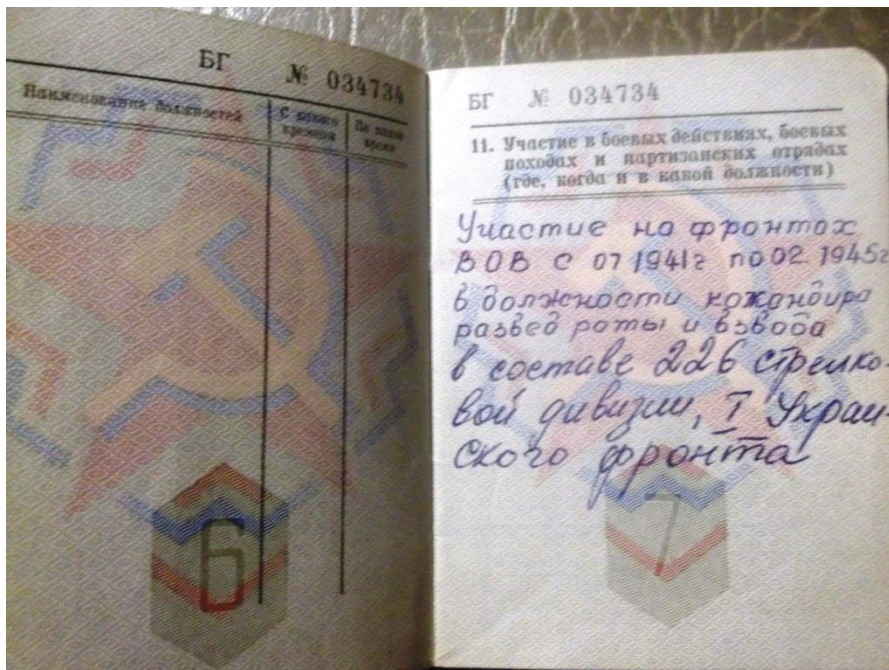 БГ № 034734
Наименования должностей
С какого времени
По какое время
6
БГ № 034734
11. Участие в боевых действиях, боевых
походах и партизанских отрядах
(где, когда и в какой должности)
Участие на фронтах
ВОВ с 07 1941г по 02. 1945г
в должности командира
развед роты и взвода
в составе 226 стрелко-
вой дивизии, I Украин-
ского фронта
7